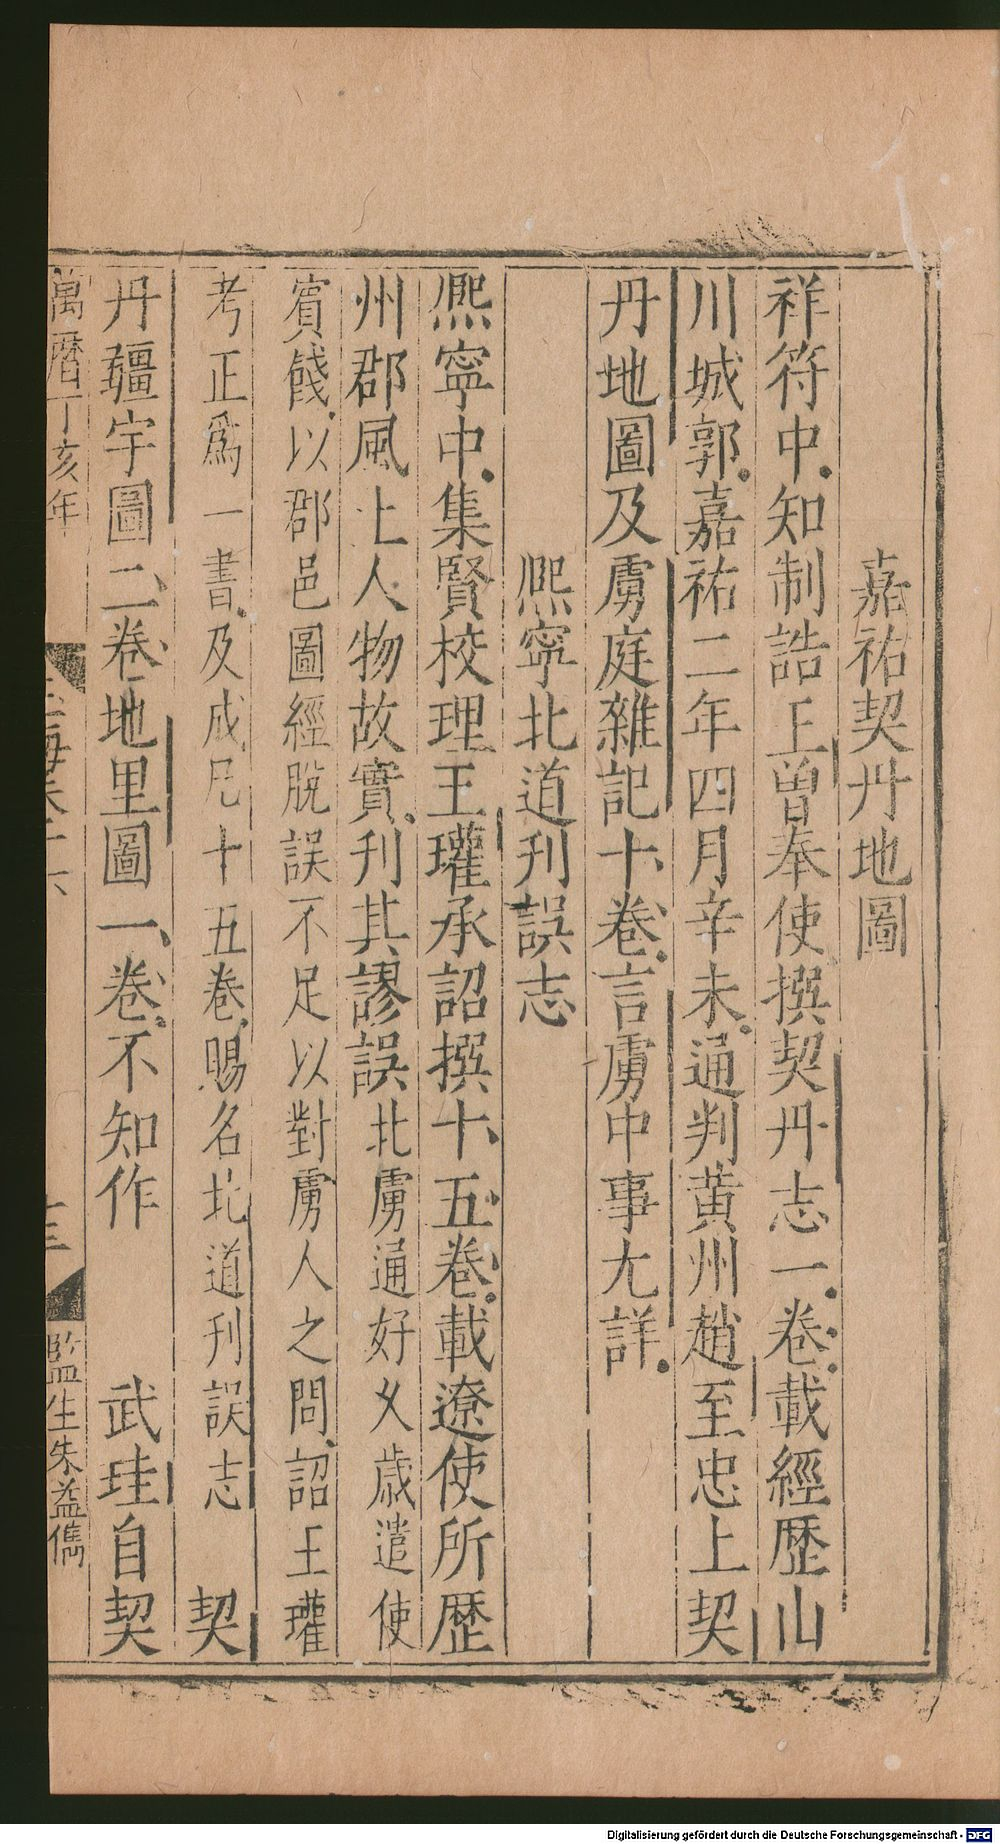 嘉祐契丹地圖
祥符中知制誥王曽奉使撰契丹志一卷載經歷山
川城郭嘉祐二年四月辛未通判黄州趙至忠上契
丹地圖及虜庭雜記十卷言虜中事尤詳
熈寧北道刋誤志
熈寧中集賢校理王瓘承詔撰十五卷載遼使所歷
州郡風土人物故實刋其謬誤北虜通好乆歳遣使
賓餞以郡邑圖經脫誤不足以對虜人之問詔王瓘
考正爲一書及成凡十五卷賜名北道刋誤志 契
丹疆宇圖二卷地里圖一卷不知作 武珪自契
萬曆丁亥年
十三
監生朱益儁
Digitalisierung gefördert durch die Deutsche Forschungsgemeinschaft - DFG